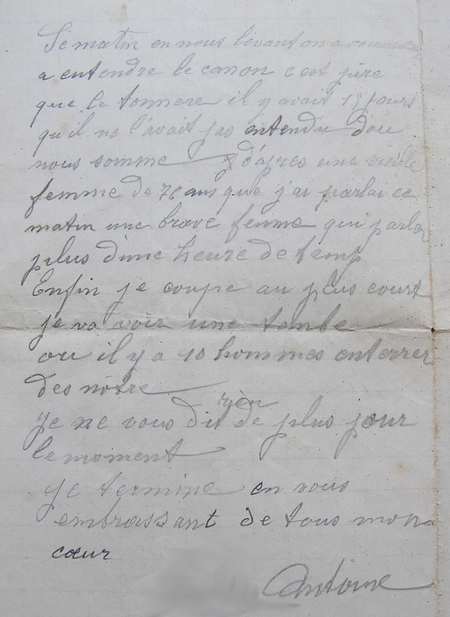 Se matin en nous levant on a commencé
a entendre le canon c est pire
que le tonnere il y avait 15 jours
qu il ne l'avait pas entendu dou
nous somme d'apres une vieille
femme de 76 ans que j'ai parlai ce
matin une brave femme qui parlai
plus dune heure de temp
Enfin je coupe au plus court
je va voir une tombe
ou il y a 10 hommes enterrer
des notre
je ne vous dit rien de plus pour
le moment
je termine en vous
embrassant de tous mon
cœur
Antoine